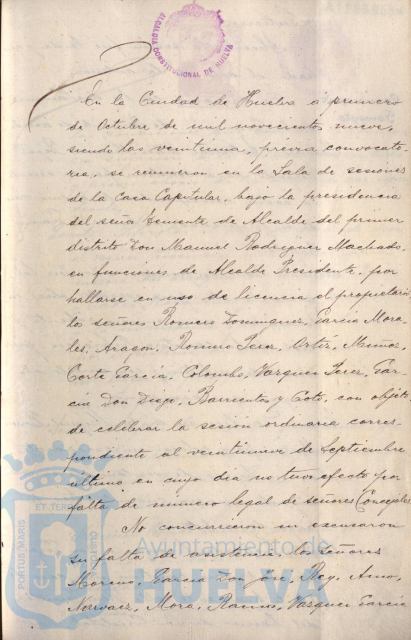 ALCALDIA CONSTITUCIONAL DE HUELVA
En la Ciudad de Huelva a primero
de Octubre de mil novecientos nueve,
siendo las veintiuna, previa convocato-
ria, se reunieron en la Sala de sesiones
de la Casa Capitular, bajo la presidencia
del señor Teniente de Alcalde del primer
distrito Don Manuel Rodriguez Machado,
en funciones de Alcalde Presidente, por
hallarse en uso de licencia el propietario
los señores Romero Dominguez, Garcia Mora-
les, Aragon, Romero Perez, Ortiz, Muñoz,
Corte Garcia, Colombo, Vazquez Perez, Gar-
cia Don Diego, Barrientos y Coto, con objeto
de celebrar la sesión ordinaria corres-
pondiente al veintinueve de Septiembre
último en cuyo dia no tuvo efecto por
falta de numero legal de señores Concejales
No concurrieron ni excusaron
su falta de asistencia los señores
Moreno, Garcia Don José, Rey,
Narvaez, Mora, Ramos, Vazquez Garcia
PORTUS MARIS ET TERRE CUSTODIA
Ayuntamiento de
HUELVA